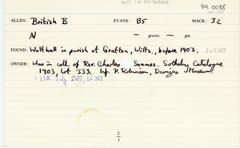 NOT IN CATALOGUE
74.0088
ALLEN: British B EVANS: B5 MACK: 32
AV — grains; — gm.
FOUND: Walthall in parish of Gratton, Wilts, before 1903.
OWNER: Was in coll. of Rev. Charles Soames. Sotheby Catalogue
1903, lot 333. Inf. P. Robinson, Devizes Museum